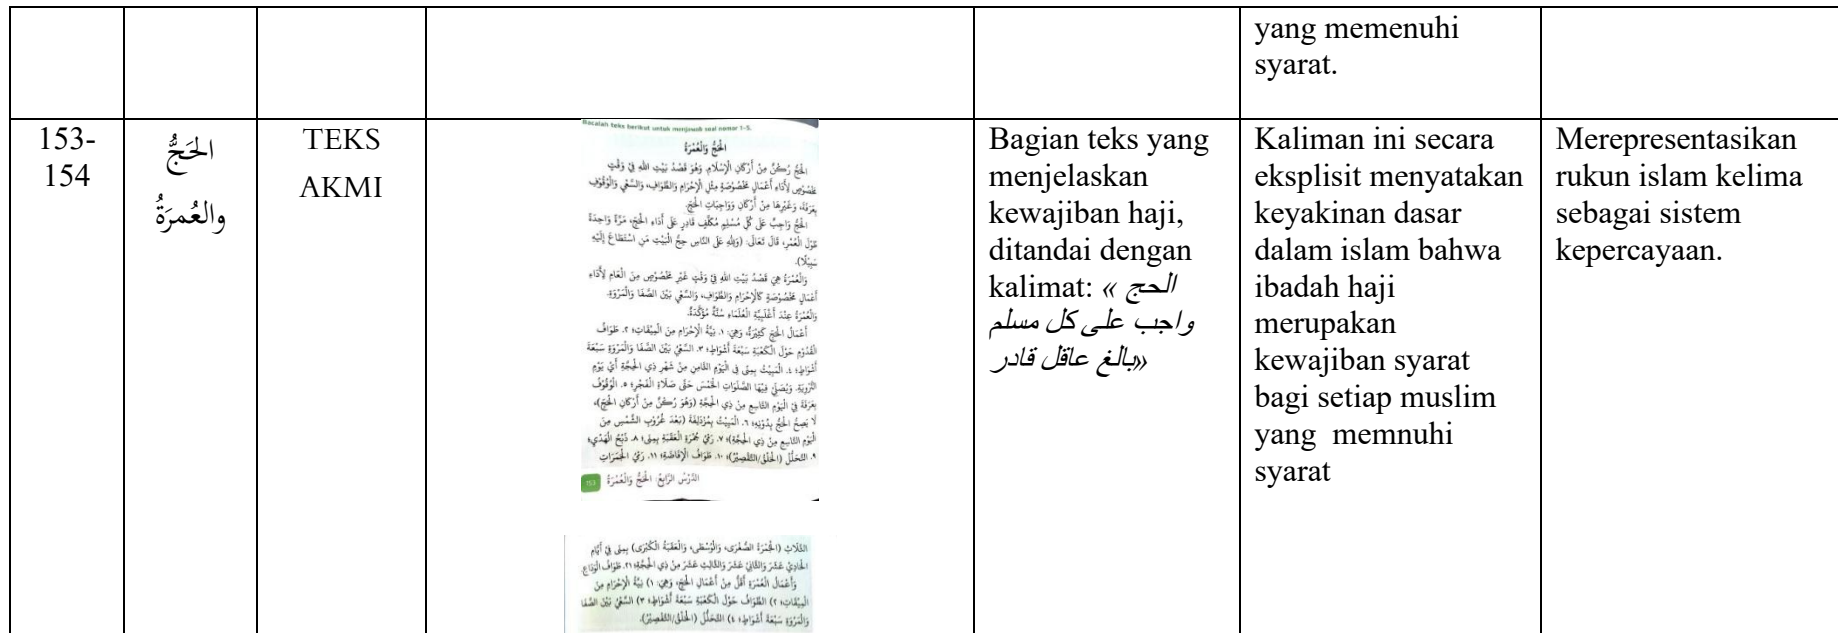 yang memenuhi
syarat.
153-
154
الحَجُّ
والعُمرَةُ
TEKS
AKMI
Bacalah teks berikut untuk menjawab soal nomor 1-5.
الْحَجُّ وَالْعُمْرَةُ
الْحَجُّ رُكْنٌ مِنْ أَرْكَانِ الْإِسْلَامِ. وَهُوَ قَصْدُ بَيْتِ اللهِ فِيْ وَقْتٍ
مَخْصُوْصٍ لِأَدَاءِ أَعْمَالٍ مَخْصُوْصَةٍ مِثْلِ الْإِحْرَامِ وَالطَّوَافِ، وَالسَّعْيِ وَالْوُقُوْفِ
بِعَرَفَةَ، وَغَيْرِهَا مِنْ أَرْكَانِ وَوَاجِبَاتِ الْحَجِّ.
الْحَجُّ وَاجِبٌ عَلَى كُلِّ مُسْلِمٍ مُكَلَّفٍ قَادِرٍ عَلَى أَدَاءِ الْحَجِّ، مَرَّةً وَاحِدَةً
طُوْلَ الْعُمْرِ، قَالَ تَعَالَى: (وَلِلّٰهِ عَلَى النَّاسِ حِجُّ الْبَيْتِ مَنِ اسْتَطَاعَ إِلَيْهِ
سَبِيْلًا).
وَالْعُمْرَةُ هِيَ قَصْدُ بَيْتِ اللهِ فِيْ وَقْتٍ غَيْرِ مَخْصُوْصٍ مِنَ الْعَامِ لِأَدَاءِ
أَعْمَالٍ مَخْصُوْصَةٍ كَالْإِحْرَامِ وَالطَّوَافِ، وَالسَّعْيِ بَيْنَ الصَّفَا وَالْمَرْوَةِ.
وَالْعُمْرَةُ عِنْدَ أَغْلَبِيَّةِ الْعُلَمَاءِ سُنَّةٌ مُؤَكَّدَةٌ.
أَعْمَالُ الْحَجِّ كَثِيْرَةٌ، وَهِيَ: ١. نِيَّةُ الْإِحْرَامِ مِنَ الْمِيْقَاتِ؛ ٢. طَوَافُ
الْقُدُوْمِ حَوْلَ الْكَعْبَةِ سَبْعَةَ أَشْوَاطٍ؛ ٣. السَّعْيُ بَيْنَ الصَّفَا وَالْمَرْوَةِ سَبْعَةَ
أَشْوَاطٍ؛ ٤. الْمَبِيْتُ بِمِنَى فِي الْيَوْمِ الثَّامِنِ مِنْ شَهْرِ ذِي الْحِجَّةِ أَيْ يَوْمِ
التَّرْوِيَةِ. وَيُصَلِّيْ فِيْهَا الصَّلَوَاتِ الْخَمْسَ حَتَّى صَلَاةِ الْفَجْرِ؛ ٥. الْوُقُوْفُ
بِعَرَفَةَ فِيْ الْيَوْمِ التَّاسِعِ مِنْ ذِي الْحِجَّةِ (وَهُوَ رُكْنٌ مِنْ أَرْكَانِ الْحَجِّ)،
لَا يَصِحُّ الْحَجُّ بِدُوْنِهِ؛ ٦. الْمَبِيْتُ بِمُزْدَلِفَةَ (بَعْدَ غُرُوْبِ الشَّمْسِ مِنَ
الْيَوْمِ التَّاسِعِ مِنْ ذِي الْحِجَّةِ)؛ ٧. رَمْيُ جَمْرَةِ الْعَقَبَةِ بِمِنَى؛ ٨. ذَبْحُ الْهَدْيِ؛
٩. التَّحَلُّلُ (الْحَلْقُ/التَّقْصِيْرُ)؛ ١٠. طَوَافُ الْإِفَاضَةِ؛ ١١. رَمْيُ الْجَمَرَاتِ
الدَّرْسُ الرَّابِعُ: الْحَجُّ وَالْعُمْرَةُ 153
الثَّلَاثِ (الْجَمْرَةُ الصُّغْرَى، وَالْوُسْطَى، وَالْعَقَبَةُ الْكُبْرَى) بِمِنَى فِيْ أَيَّامِ
الْحَادِيْ عَشَرَ وَالثَّانِيْ عَشَرَ وَالثَّالِثَ عَشَرَ مِنْ ذِي الْحِجَّةِ؛ ١٢. طَوَافُ الْوَدَاعِ.
وَأَعْمَالُ الْعُمْرَةِ أَقَلُّ مِنْ أَعْمَالِ الْحَجِّ، وَهِيَ: ١) نِيَّةُ الْإِحْرَامِ مِنَ
الْمِيْقَاتِ؛ ٢) الطَّوَافُ حَوْلَ الْكَعْبَةِ سَبْعَةَ أَشْوَاطٍ؛ ٣) السَّعْيُ بَيْنَ الصَّفَا
وَالْمَرْوَةِ سَبْعَةَ أَشْوَاطٍ؛ ٤) التَّحَلُّلُ (الْحَلْقُ/التَّقْصِيْرُ).
Bagian teks yang
menjelaskan
kewajiban haji,
ditandai dengan
kalimat: « الحج
واجب على كل مسلم
بالغ عاقل قادر»
Kaliman ini secara
eksplisit menyatakan
keyakinan dasar
dalam islam bahwa
ibadah haji
merupakan
kewajiban syarat
bagi setiap muslim
yang memnuhi
syarat
Merepresentasikan
rukun islam kelima
sebagai sistem
kepercayaan.